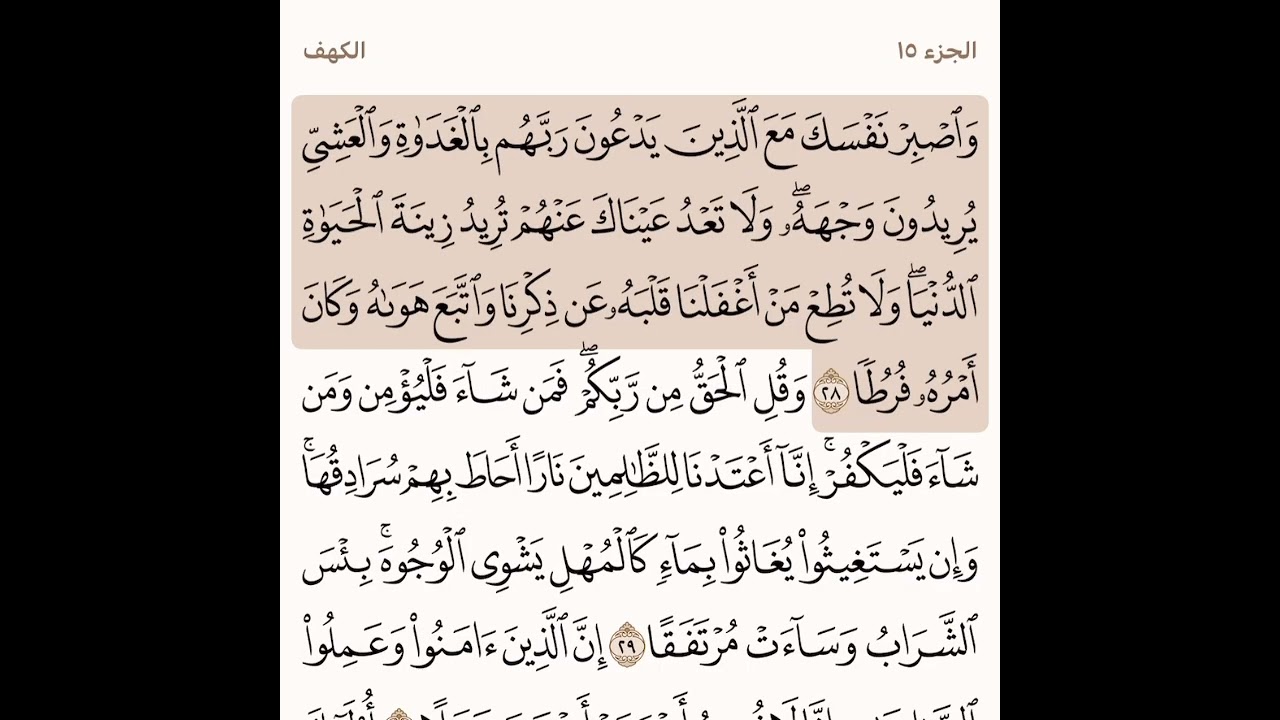 الجزء ١٥
الكهف
وَٱصۡبِرۡ نَفۡسَكَ مَعَ ٱلَّذِينَ يَدۡعُونَ رَبَّهُم بِٱلۡغَدَوٰةِ وَٱلۡعَشِيِّ
يُرِيدُونَ وَجۡهَهُۥۖ وَلَا تَعۡدُ عَيۡنَاكَ عَنۡهُمۡ تُرِيدُ زِينَةَ ٱلۡحَيَوٰةِ
ٱلدُّنۡيَاۖ وَلَا تُطِعۡ مَنۡ أَغۡفَلۡنَا قَلۡبَهُۥ عَن ذِكۡرِنَا وَٱتَّبَعَ هَوَىٰهُ وَكَانَ
أَمۡرُهُۥ فُرُطٗا ٢٨ وَقُلِ ٱلۡحَقُّ مِن رَّبِّكُمۡۖ فَمَن شَآءَ فَلۡيُؤۡمِن وَمَن
شَآءَ فَلۡيَكۡفُرۡۚ إِنَّآ أَعۡتَدۡنَا لِلظَّٰلِمِينَ نَارًا أَحَاطَ بِهِمۡ سُرَادِقُهَاۚ
وَإِن يَسۡتَغِيثُواْ يُغَاثُواْ بِمَآءٖ كَٱلۡمُهۡلِ يَشۡوِي ٱلۡوُجُوهَۚ بِئۡسَ
ٱلشَّرَابُ وَسَآءَتۡ مُرۡتَفَقًا ٢٩ إِنَّ ٱلَّذِينَ ءَامَنُواْ وَعَمِلُواْ